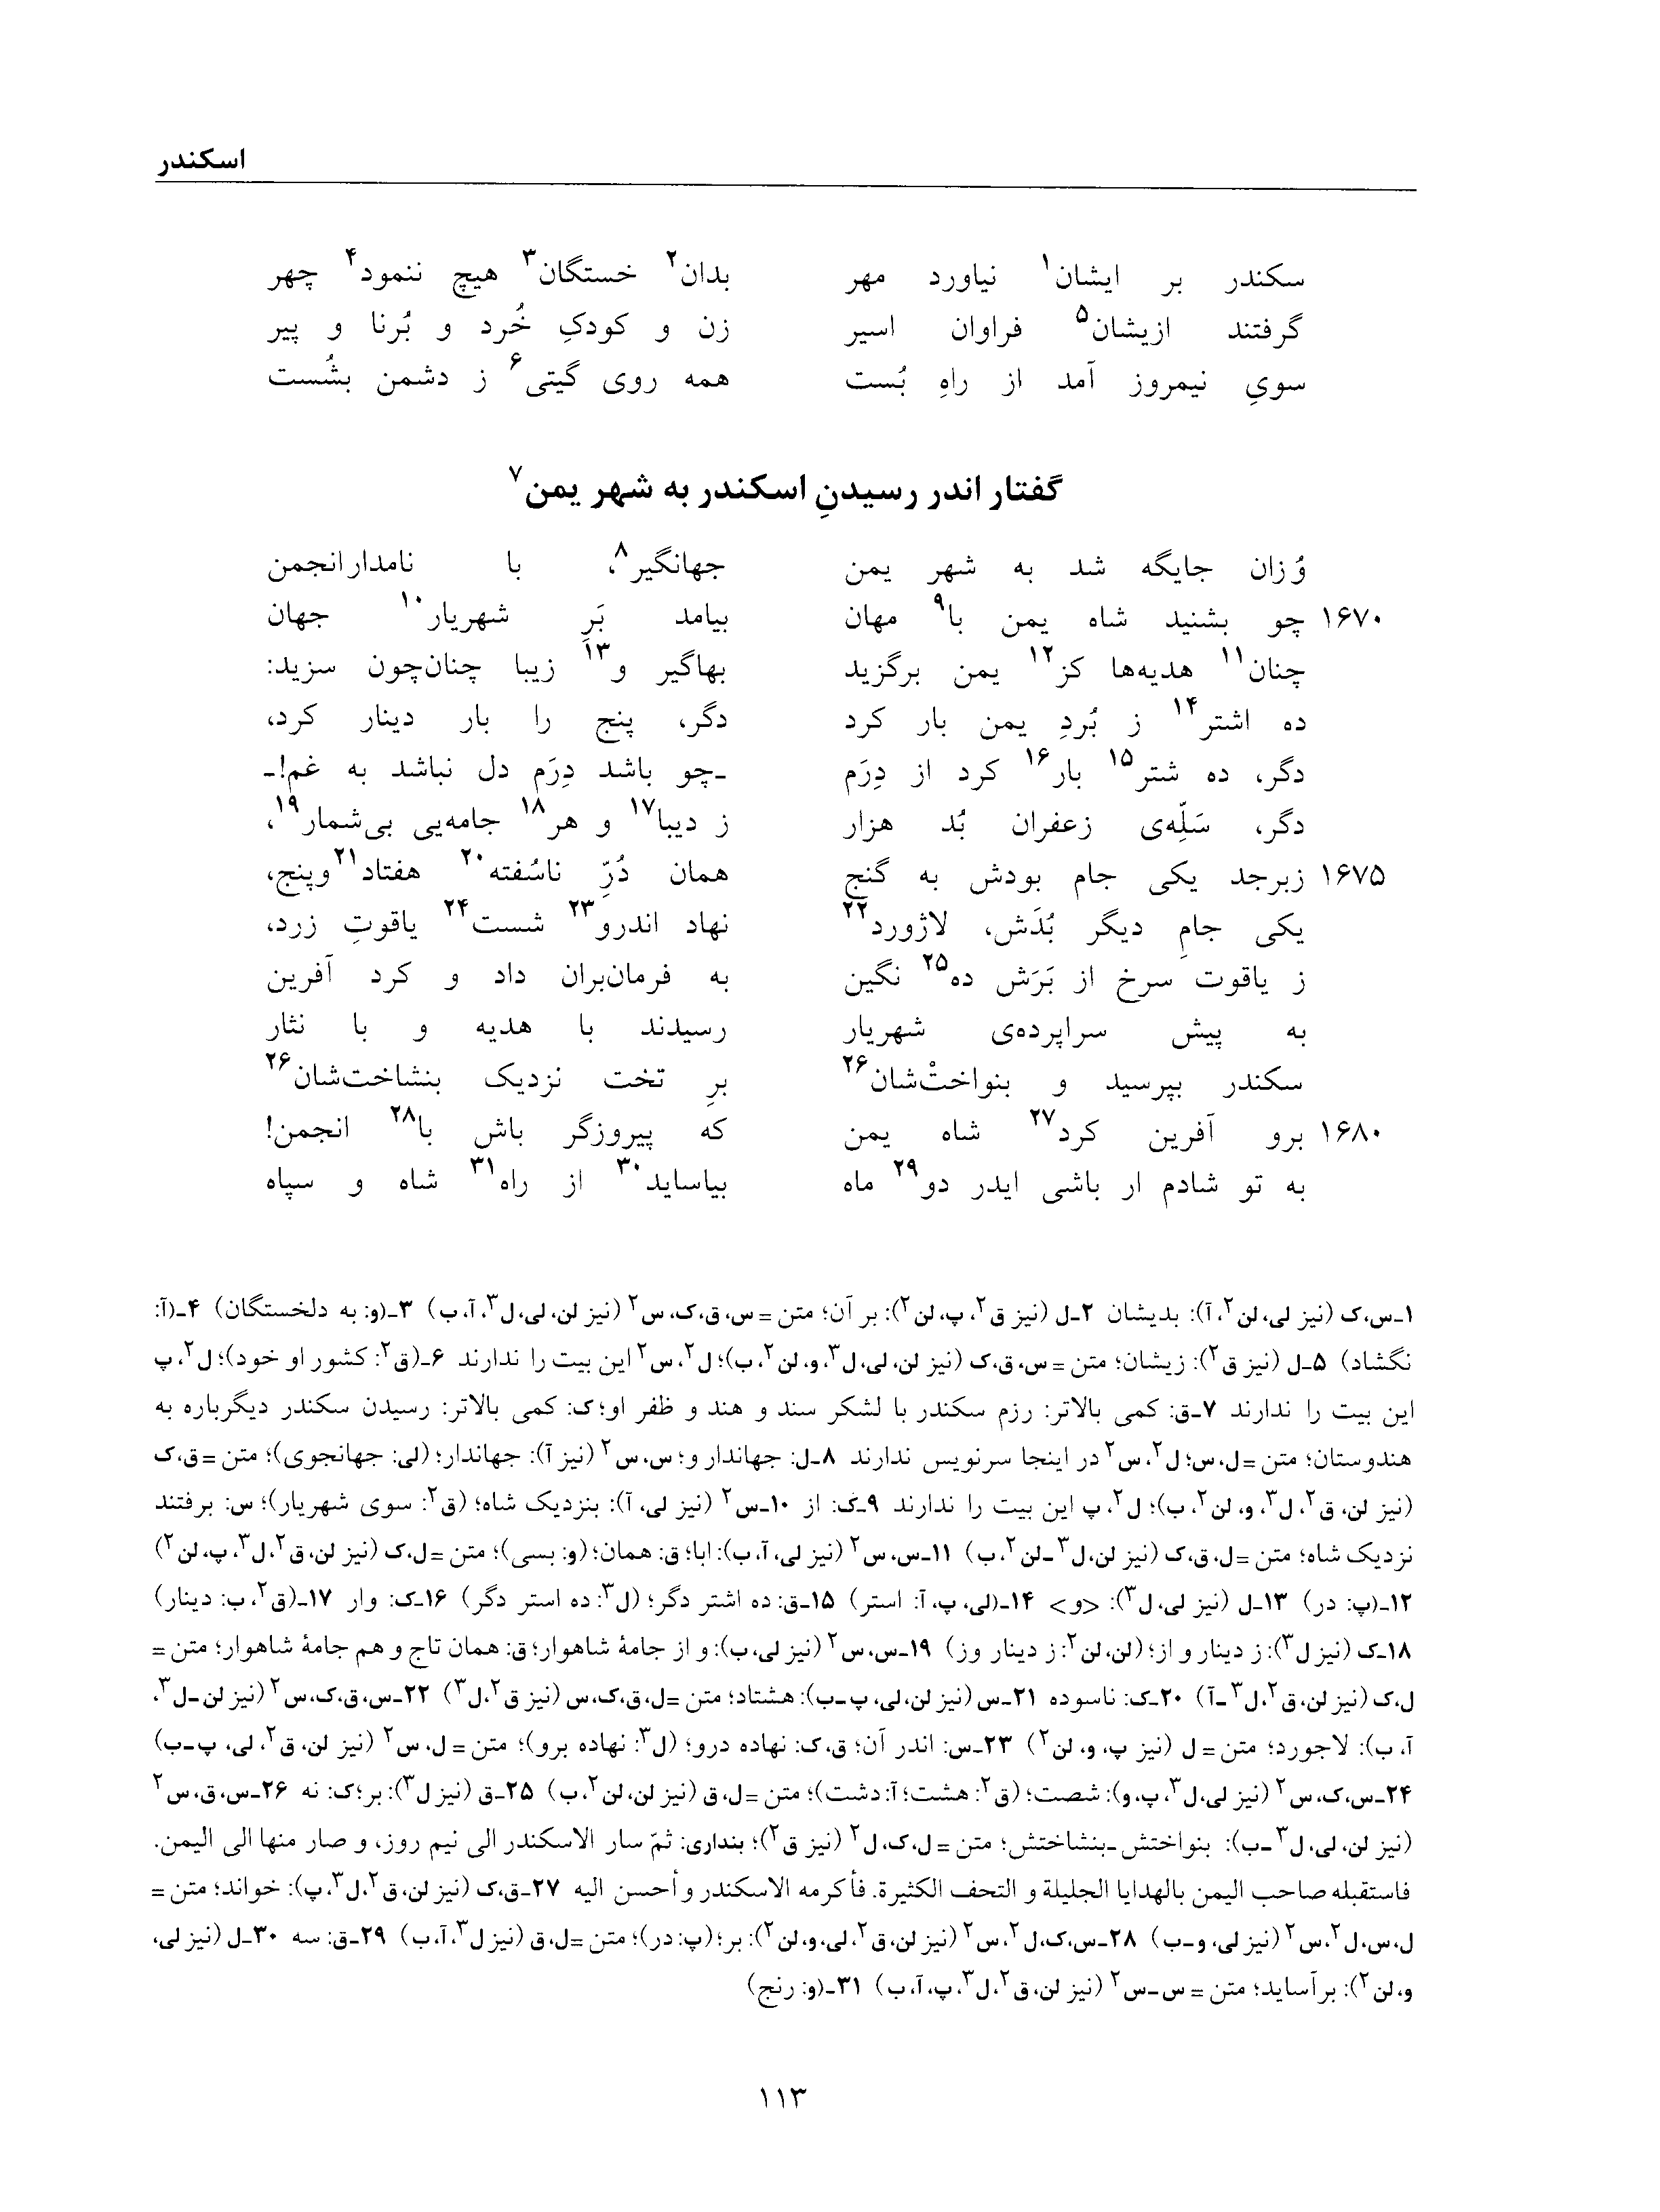 اسکندر
سکندر بر ایشان۱ نیاورد مهر بدان۲ خستگان۳ هیچ ننمود۴ چهر
گرفتند ازیشان۵ فراوان اسیر زن و کودکِ خُرد و بُرنا و پیر
سویِ نیمروز آمد از راهِ بُست همه روی گیتی۶ ز دشمن بشُست
گفتار اندر رسیدنِ اسکندر به شهر یمن۷
وُزان جایگه شد به شهر یمن جهانگیر۸، با نامدارانجمن
۱۶۷۰ چو بشنید شاه یمن با۹ مهان بیامد بَرِ شهریار۱۰ جهان
چنان۱۱ هدیه‌ها کز۱۲ یمن برگزید بهاگیر و۱۳ زیبا چنان‌چون سزید:
ده اشتر۱۴ ز بُردِ یمن بار کرد دگر، پنج را بار دینار کرد،
دگر، ده شتر۱۵ بار۱۶ کرد از دِرَم ـ‌چو باشد دِرَم دل نباشد به غم!ـ
دگر، سَلّه‌ی زعفران بُد هزار ز دیبا۱۷ و هر۱۸ جامه‌یی بی‌شمار۱۹،
۱۶۷۵ زبرجد یکی جام بودش به گنج همان دُرِّ ناسُفته۲۰ هفتاد۲۱وپنج،
یکی جامِ دیگر بُدَش، لاژورد۲۲ نهاد اندرو۲۳ شست۲۴ یاقوتِ زرد،
ز یاقوت سرخ از بَرَش ده۲۵ نگین به فرمان‌بران داد و کرد آفرین
به پیش سراپرده‌ی شهریار رسیدند با هدیه و با نثار
سکندر بپرسید و بنواختْ‌شان۲۶ برِ تخت نزدیک بنشاخت‌شان۲۶
۱۶۸۰ برو آفرین کرد۲۷ شاه یمن که پیروزگر باش با۲۸ انجمن!
به تو شادم ار باشی ایدر دو۲۹ ماه بیاساید۳۰ از راه۳۱ شاه و سپاه
۱ـ‌س،ک (نیز لی،لن۲،آ): بدیشان ۲ـ‌ل (نیز ق۲، پ،لن۲): بر آن؛ متن = س،ق،ک، س۲ (نیز لن،لی،ل۳،آ،ب) ۳ـ‌(و: به دلخستگان) ۴ـ‌(آ:
نگشاد) ۵ـ‌ل (نیز ق۲): زیشان؛ متن = س،ق،ک (نیز لن،لی،ل۳،و،لن۲،ب)؛ ل۲،س۲ این بیت را ندارند ۶ـ‌(ق۲: کشور او خود)؛ ل۲، پ
این بیت را ندارند ۷ـ‌ق: کمی بالاتر: رزم سکندر با لشکر سند و هند و ظفر او؛ ک: کمی بالاتر: رسیدن سکندر دیگرباره به
هندوستان؛ متن = ل،س؛ ل۲،س۲ در اینجا سرنویس ندارند ۸ـ‌ل: جهاندار و؛ س،س۲ (نیز آ): جهاندار؛ (لی: جهانجوی)؛ متن = ق،ک
(نیز لن، ق۲، ل۳، و، لن۲، ب)؛ ل۲، پ این بیت را ندارند ۹ـ‌ک: از ۱۰ـ‌س۲ (نیز لی، آ): بنزدیک شاه؛ (ق۲: سوی شهریار)؛ س: برفتند
نزدیک شاه؛ متن = ل، ق،ک (نیز لن،ل۳ـ‌لن۲،ب) ۱۱ـ‌س، س۲ (نیز لی، آ،ب): ابا؛ ق: همان؛ (و: بسی)؛ متن = ل،ک (نیز لن،ق۲،ل۳،پ،لن۲)
۱۲ـ‌(پ: در) ۱۳ـ‌ل (نیز لی،ل۳): <و> ۱۴ـ‌(لی، پ، آ: استر) ۱۵ـ‌ق: ده اشتر دگر؛ (ل۳: ده استر دگر) ۱۶ـ‌ک: وار ۱۷ـ‌(ق۲،ب: دینار)
۱۸ـ‌ک (نیز ل۳): ز دینار و از؛ (لن،لن۲: ز دینار وز) ۱۹ـ‌س،س۲ (نیز لی،ب): و از جامهٔ شاهوار؛ ق: همان تاج و هم جامهٔ شاهوار؛ متن =
ل،ک (نیز لن،ق۲،ل۳ـ‌آ) ۲۰ـ‌ک: ناسوده ۲۱ـ‌س (نیز لن،لی، پ‌ـ‌ب): هشتاد؛ متن = ل،ق،ک،س (نیز ق۲،ل۳) ۲۲ـ‌س،ق،ک،س۲ (نیز لن‌ـ‌ل۳،
آ، ب): لاجورد؛ متن = ل (نیز پ، و، لن۲) ۲۳ـ‌س: اندر آن؛ ق،ک: نهاده درو؛ (ل۳: نهاده برو)؛ متن = ل، س۲ (نیز لن، ق۲، لی، پ‌ـ‌ب)
۲۴ـ‌س،ک،س۲ (نیز لی،ل۳،پ،و): شصت؛ (ق۲: هشت؛ آ: دشت)؛ متن = ل،ق (نیز لن،لن۲،ب) ۲۵ـ‌ق (نیز ل۳): بر؛ ک: نه ۲۶ـ‌س،ق،س۲
(نیز لن، لی، ل۳ـ‌ب): بنواختش‌ـ‌بنشاختش؛ متن = ل،ک،ل۲ (نیز ق۲)؛ بنداری: ثمّ سار الاسکندر الی نیم روز، و صار منها الی الیمن.
فاستقبله صاحب الیمن بالهدایا الجلیلة و التحف الکثیرة. فأکرمه الاسکندر و أحسن الیه ۲۷ـ‌ق،ک (نیز لن، ق۲،ل۳،پ): خواند؛ متن =
ل،س،ل۲،س۲ (نیز لی، و‌ـ‌ب) ۲۸ـ‌س،ک،ل۲،س۲ (نیز لن،ق۲،لی،و،لن۲): بر؛ (پ: در)؛ متن = ل،ق (نیز ل۳،آ،ب) ۲۹ـ‌ق: سه ۳۰ـ‌ل (نیز لی،
و،لن۲): برآساید؛ متن = س‌ـ‌س۲ (نیز لن،ق۲،ل۳،پ،آ،ب) ۳۱ـ‌(و: رنج)
۱۱۳